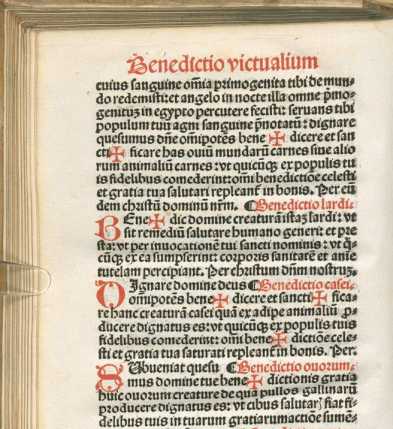 Benedictio victualium
cuius sanguine om̄ia primogenita tibi de mun⸗
do redemisti: et angelo in nocte illa omne p̄mo⸗
genitū in egypto percutere fecisti: seruans tibi
populum tuū agni sanguine p̄notatū: dignare
quesumus dn̄e om̄ipotēs bene ✠ dicere et san
cti ✠ ficare has ouiū mundarū carnes siue alio
rum animaliū carnes: vt quicūqꝫ ex populis tu
is fidelibus comederint: om̄i benedictiōe celesti
et gratia tua salutari repleant̄ in bonis. Per eū
dem christū dominū nr̄m. ¶ Benedictio lardi.
BEne ✠ dic domine creaturā istaꝫ lardi: vt
sit remediū salutare humano generi: et pre
sta: vt per inuocationē tui sancti nominis: vt q̄⸗
cūqꝫ ex ea sumpserint: corporis sanitatē et anie
tutelam percipiant. Per christum dn̄m nostruꝫ.
DIgnare domine deus ¶ Benedictio casei.
om̄ipotēs bene ✠ dicere et sancti ✠ fica⸗
re hanc creaturā casei quā ex adipe animaliū ꝓ⸗
ducere dignatus es: vt quicūqꝫ ex populis tuis
fidelibus comederint: om̄i bene ✠ dictiōe cele⸗
sti et gratia tua saturati repleant̄ in bonis. Per.
SUbueniat quesu ¶ Benedictio ouorum.
mus domine tue bene ✠ dictionis gratia
huic ouorum creature: de qua pullos gallinarū
producere dignatus es: vt cibus salutaris fiat fi⸗
delibus tuis in tuarum gratiarum actiōe sumē⸗